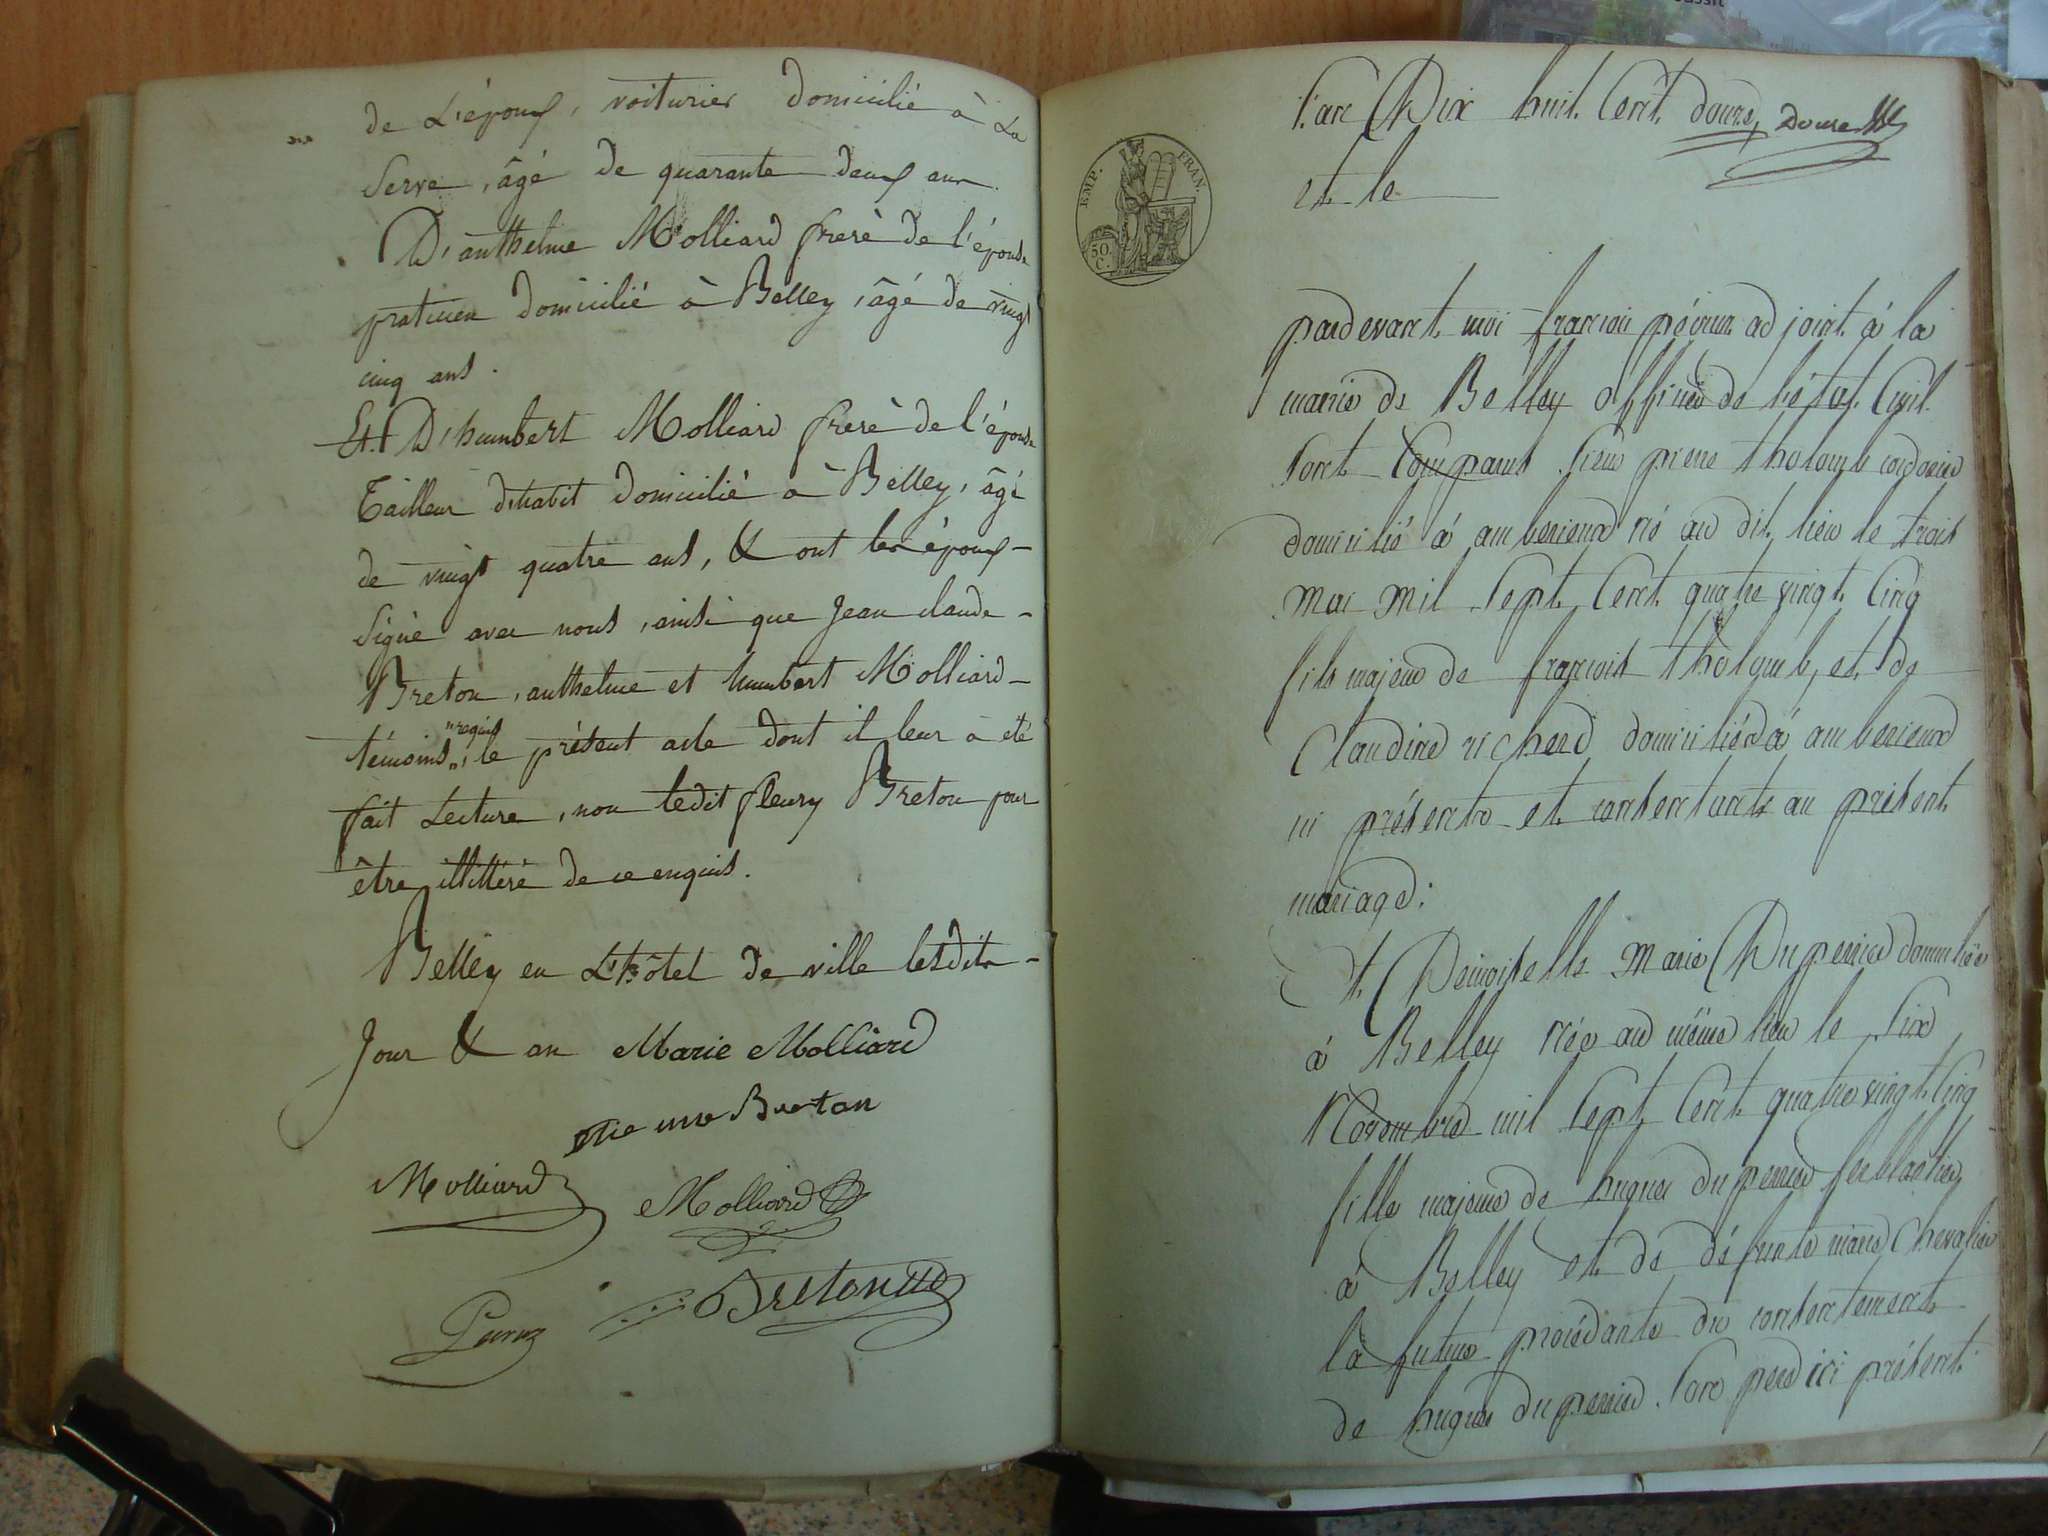 de L'époux, voiturier domicilié à La
Serve, âgé de quarante deux ans.
D'anthelme Molliard frere de l'épouse
praticien domicilié à Belley, âgé de vingt
cinq ans.
Et D'humbert Molliard frere de l'épouse
Tailleur d'habit domicilié à Belley, âgé
de vingt quatre ans, & ont les époux
Signé avec nous, ainsi que Jean claude
Breton, anthelme et humbert Molliard
témoins "requis", le présent acte dont il leur a été
fait Lecture, non ledit fleury Breton pour
être illitéré de ce enquis.
Belley en L'hôtel de ville lesdits
Jour & an Marie Molliard
Breton
Molliard Molliard
Breton
EMP. FRAN.
50 C.
L'an Dix huit Cent douze, Douze
et le
pardevant moi françois adjoint à la
mairie de Belley officier de l'état Civil
Sont Comparus Sieur pierre tholomb cordonier
domicilié à amberieux né au dit lieu le trois
Mai Mil Sept Cent quatre vingt Cinq
fils majeur de françois tholomb, et de
Claudine richerd domiciliés à amberieux
ici présents et consentants au présent
mariage:
Et Demoiselle Marie Duperrier domiciliée
à Belley née au même lieu le Six
Novembre mil Sept Cent quatre vingt Cinq
fille majeure de hugues duperrier ferblantier
à Belley et de défunte marie Chevalier
la future procédante du consentement
de hugues duperrier Son pere ici présent